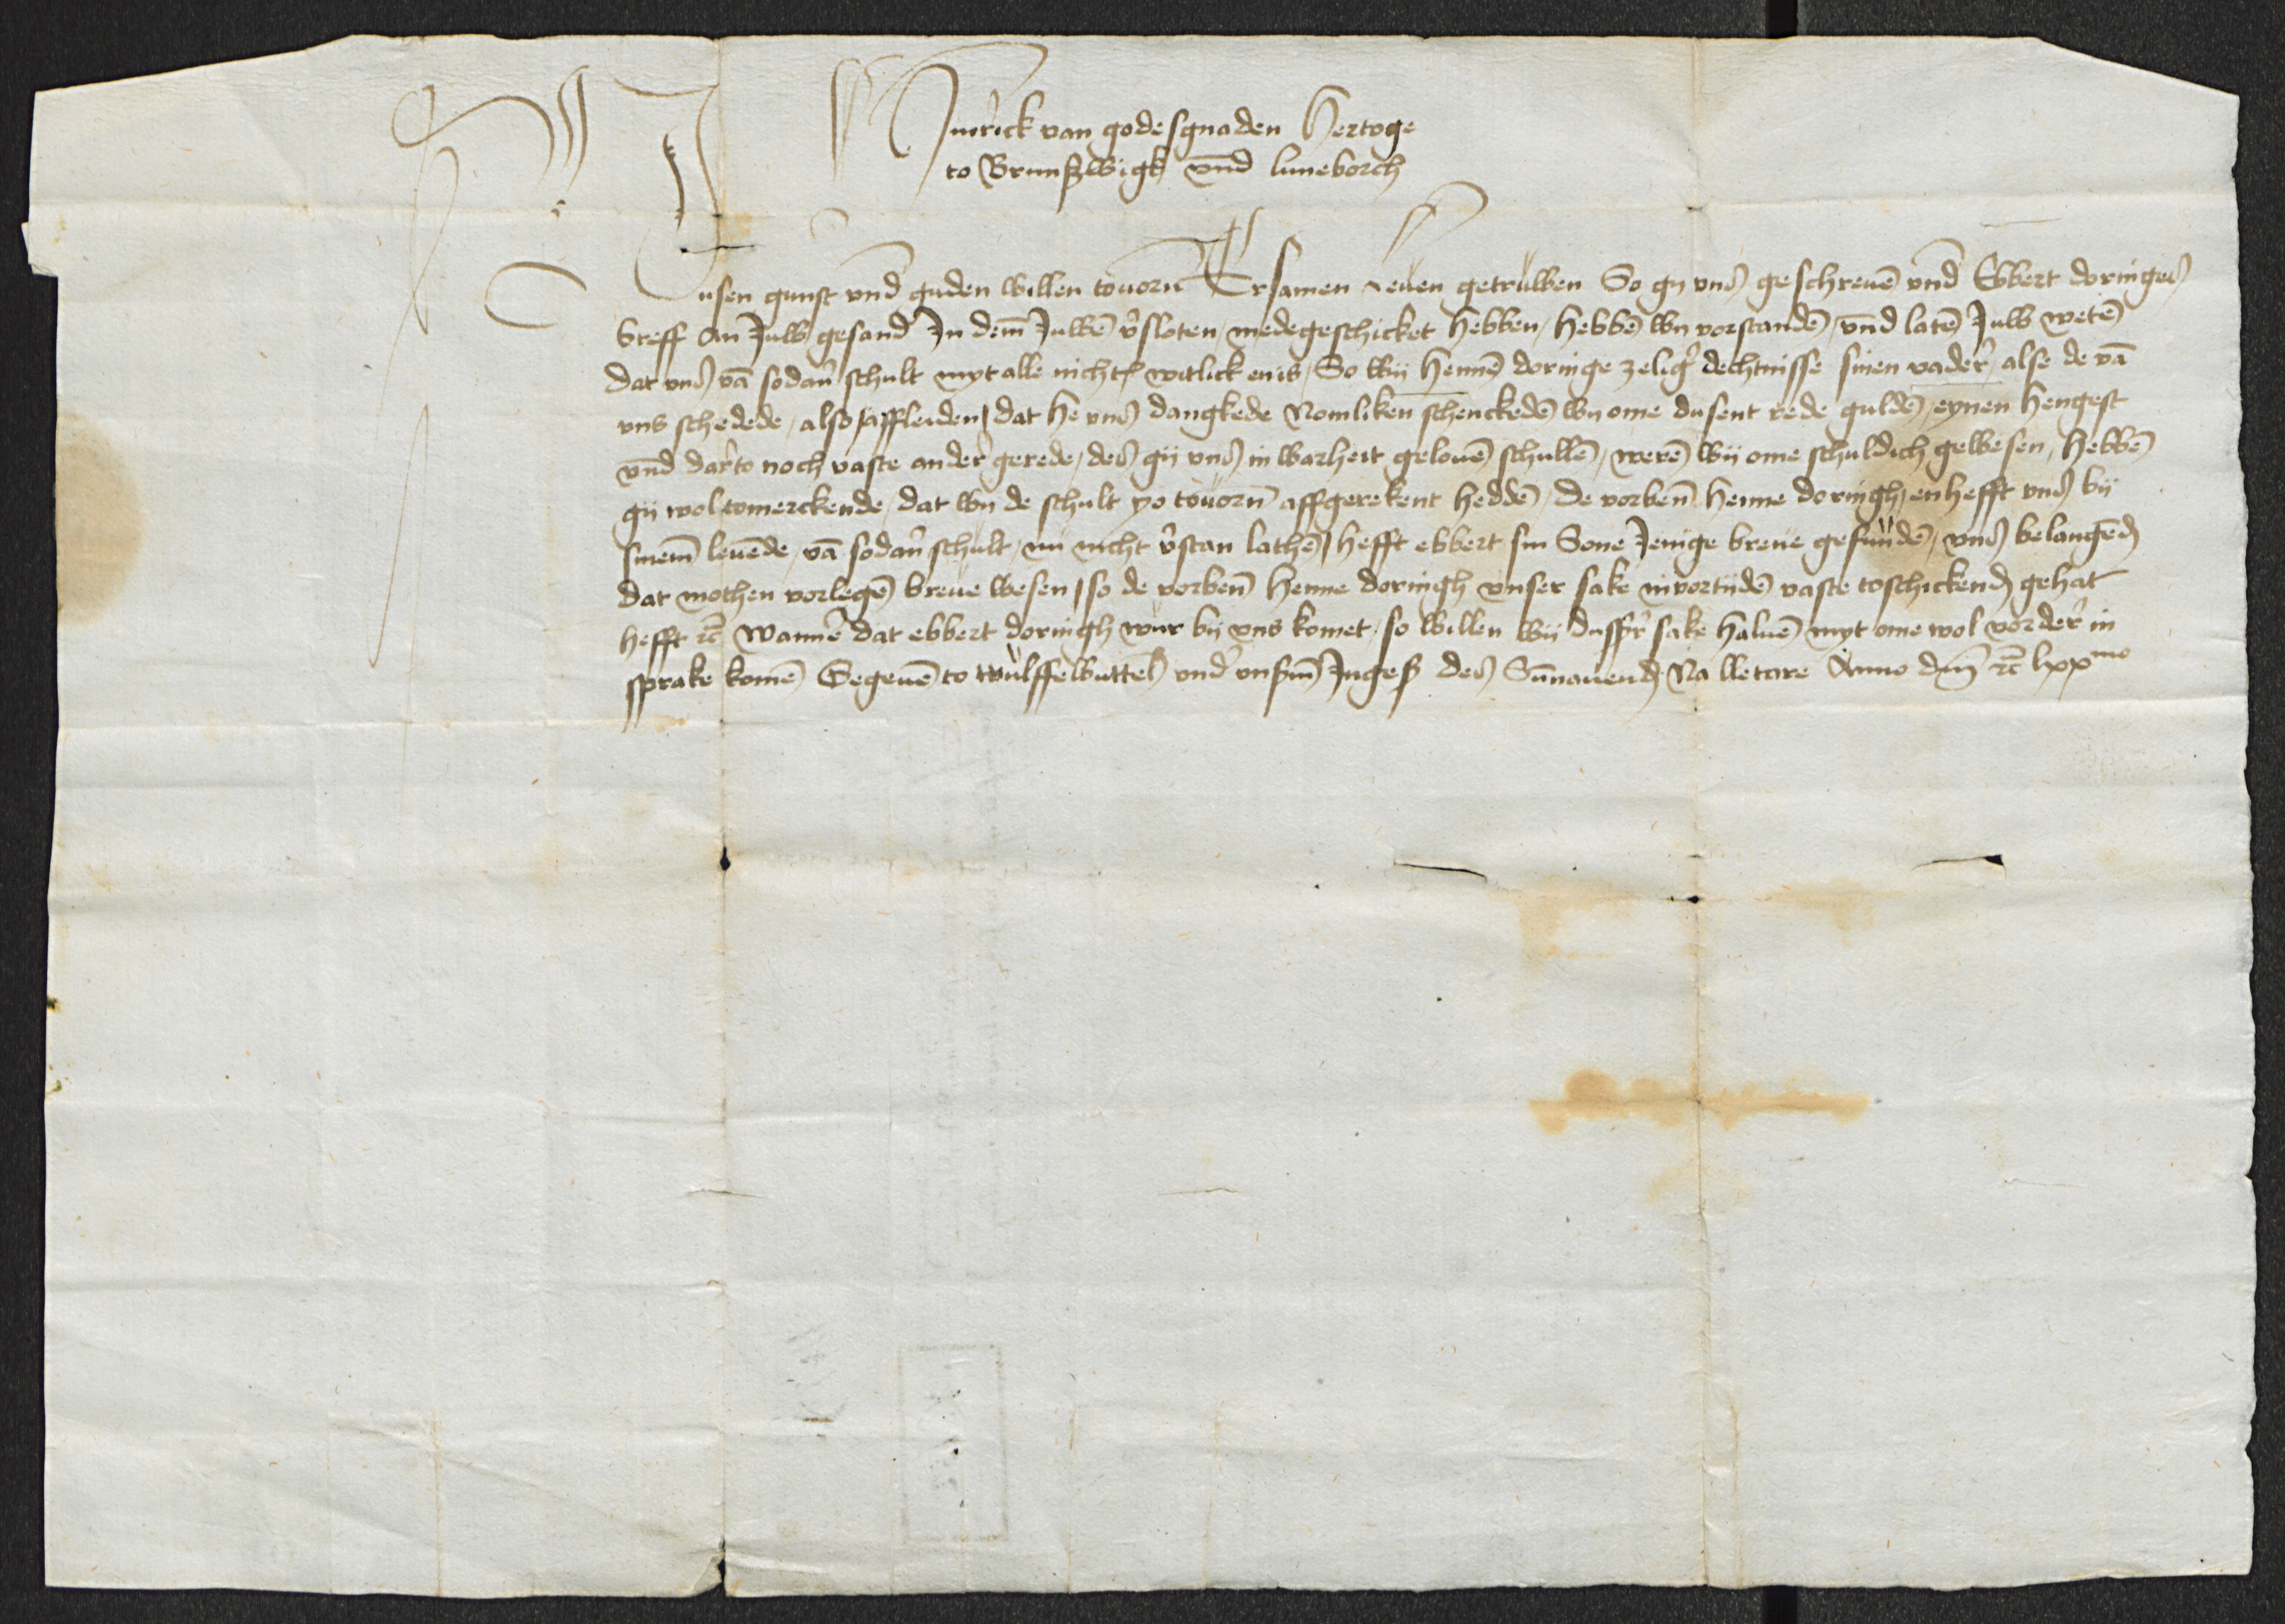 Hinrick van godesgnaden Hertoge
to Brunßwigk vnd luneborch
Vnsen gunst vnd guden willen touorn Ersamen leuen getruwen So gy vns geschreuē vnd Ebbert doringes
breff an Juw gesand In dem Juwē v̉sloten medegeschicket hebben / hebbē wy vorstandē / vnd latē Juw wetē
dat vns vā sodan̉ schult myt alle nicht witlick enis / So wij Hennē doringe zelig̉ dechtnisse sinen vader̉ / alse de vā
vns schedede / also affleiden / dat he vns dangkede Nomliken schenckedē wy ome dusent rede guldē / eynen hengest
vnd dar̉to noch vaste ander̉ gerede / des gij vns in warheit gelouē schullē / werē wij ome schuldich gewesen / hebbē
gij wol tomerckende / dat wy de schult yo touorn affgerekent heddē / de vorben̄ henne doringh / enhefft vns bij
sinem leuēde / vā sodan̉ schult / nü nicht v̉stan lathē / hefft ebbert sin Sone Jenige breue gefundē / vns belangēd
dat mothen vorlegē breue wesen / so de vorben̄ Henne doringh vnser sake in vortijdē vaste toschickend gehat
hefft rc̄ Wanner̉ dat ebbert doringh wur bij vns komet / so willen wij dusser̉ sake haluē myt ome wol vorder̉ in
sprake komē Gegeuē to wulffelbuttel vnd̉ vnsm̄ Ingeß des Sūnauend Na lletare Anno dm̄ rc̄ lxxmo